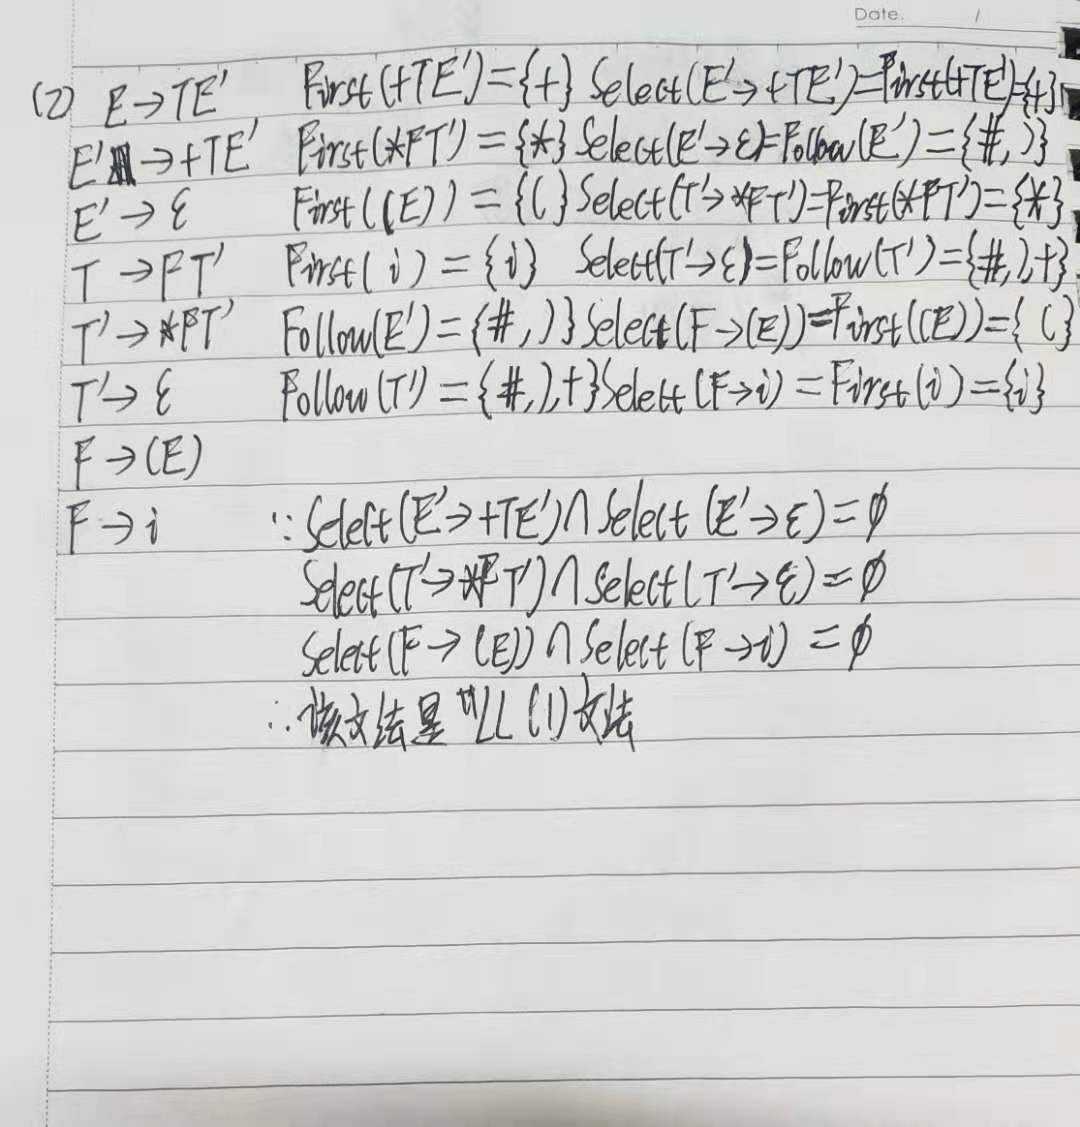 Date. /
(2) E→TE' First(+TE')={+} Select(E'→+TE')=First(+TE')={+}
E'→+TE' First(*FT')={*} Select(E'→ε)=Follow(E')={#,)}
E'→ε First((E))={(} Select(T'→*FT')=First(*FT')={*}
T→FT' First(i)={i} Select(T'→ε)=Follow(T')={#,),+}
T'→*FT' Follow(E')={#,)} Select(F→(E))=First((E))={(}
T'→ε Follow(T')={#,),+} Select(F→i)=First(i)={i}
F→(E)
F→i ∵Select(E'→+TE')∩Select(E'→ε)=∅
Select(T'→*FT')∩Select(T'→ε)=∅
Select(F→(E))∩Select(F→i)=∅
∴该文法是LL(1)文法